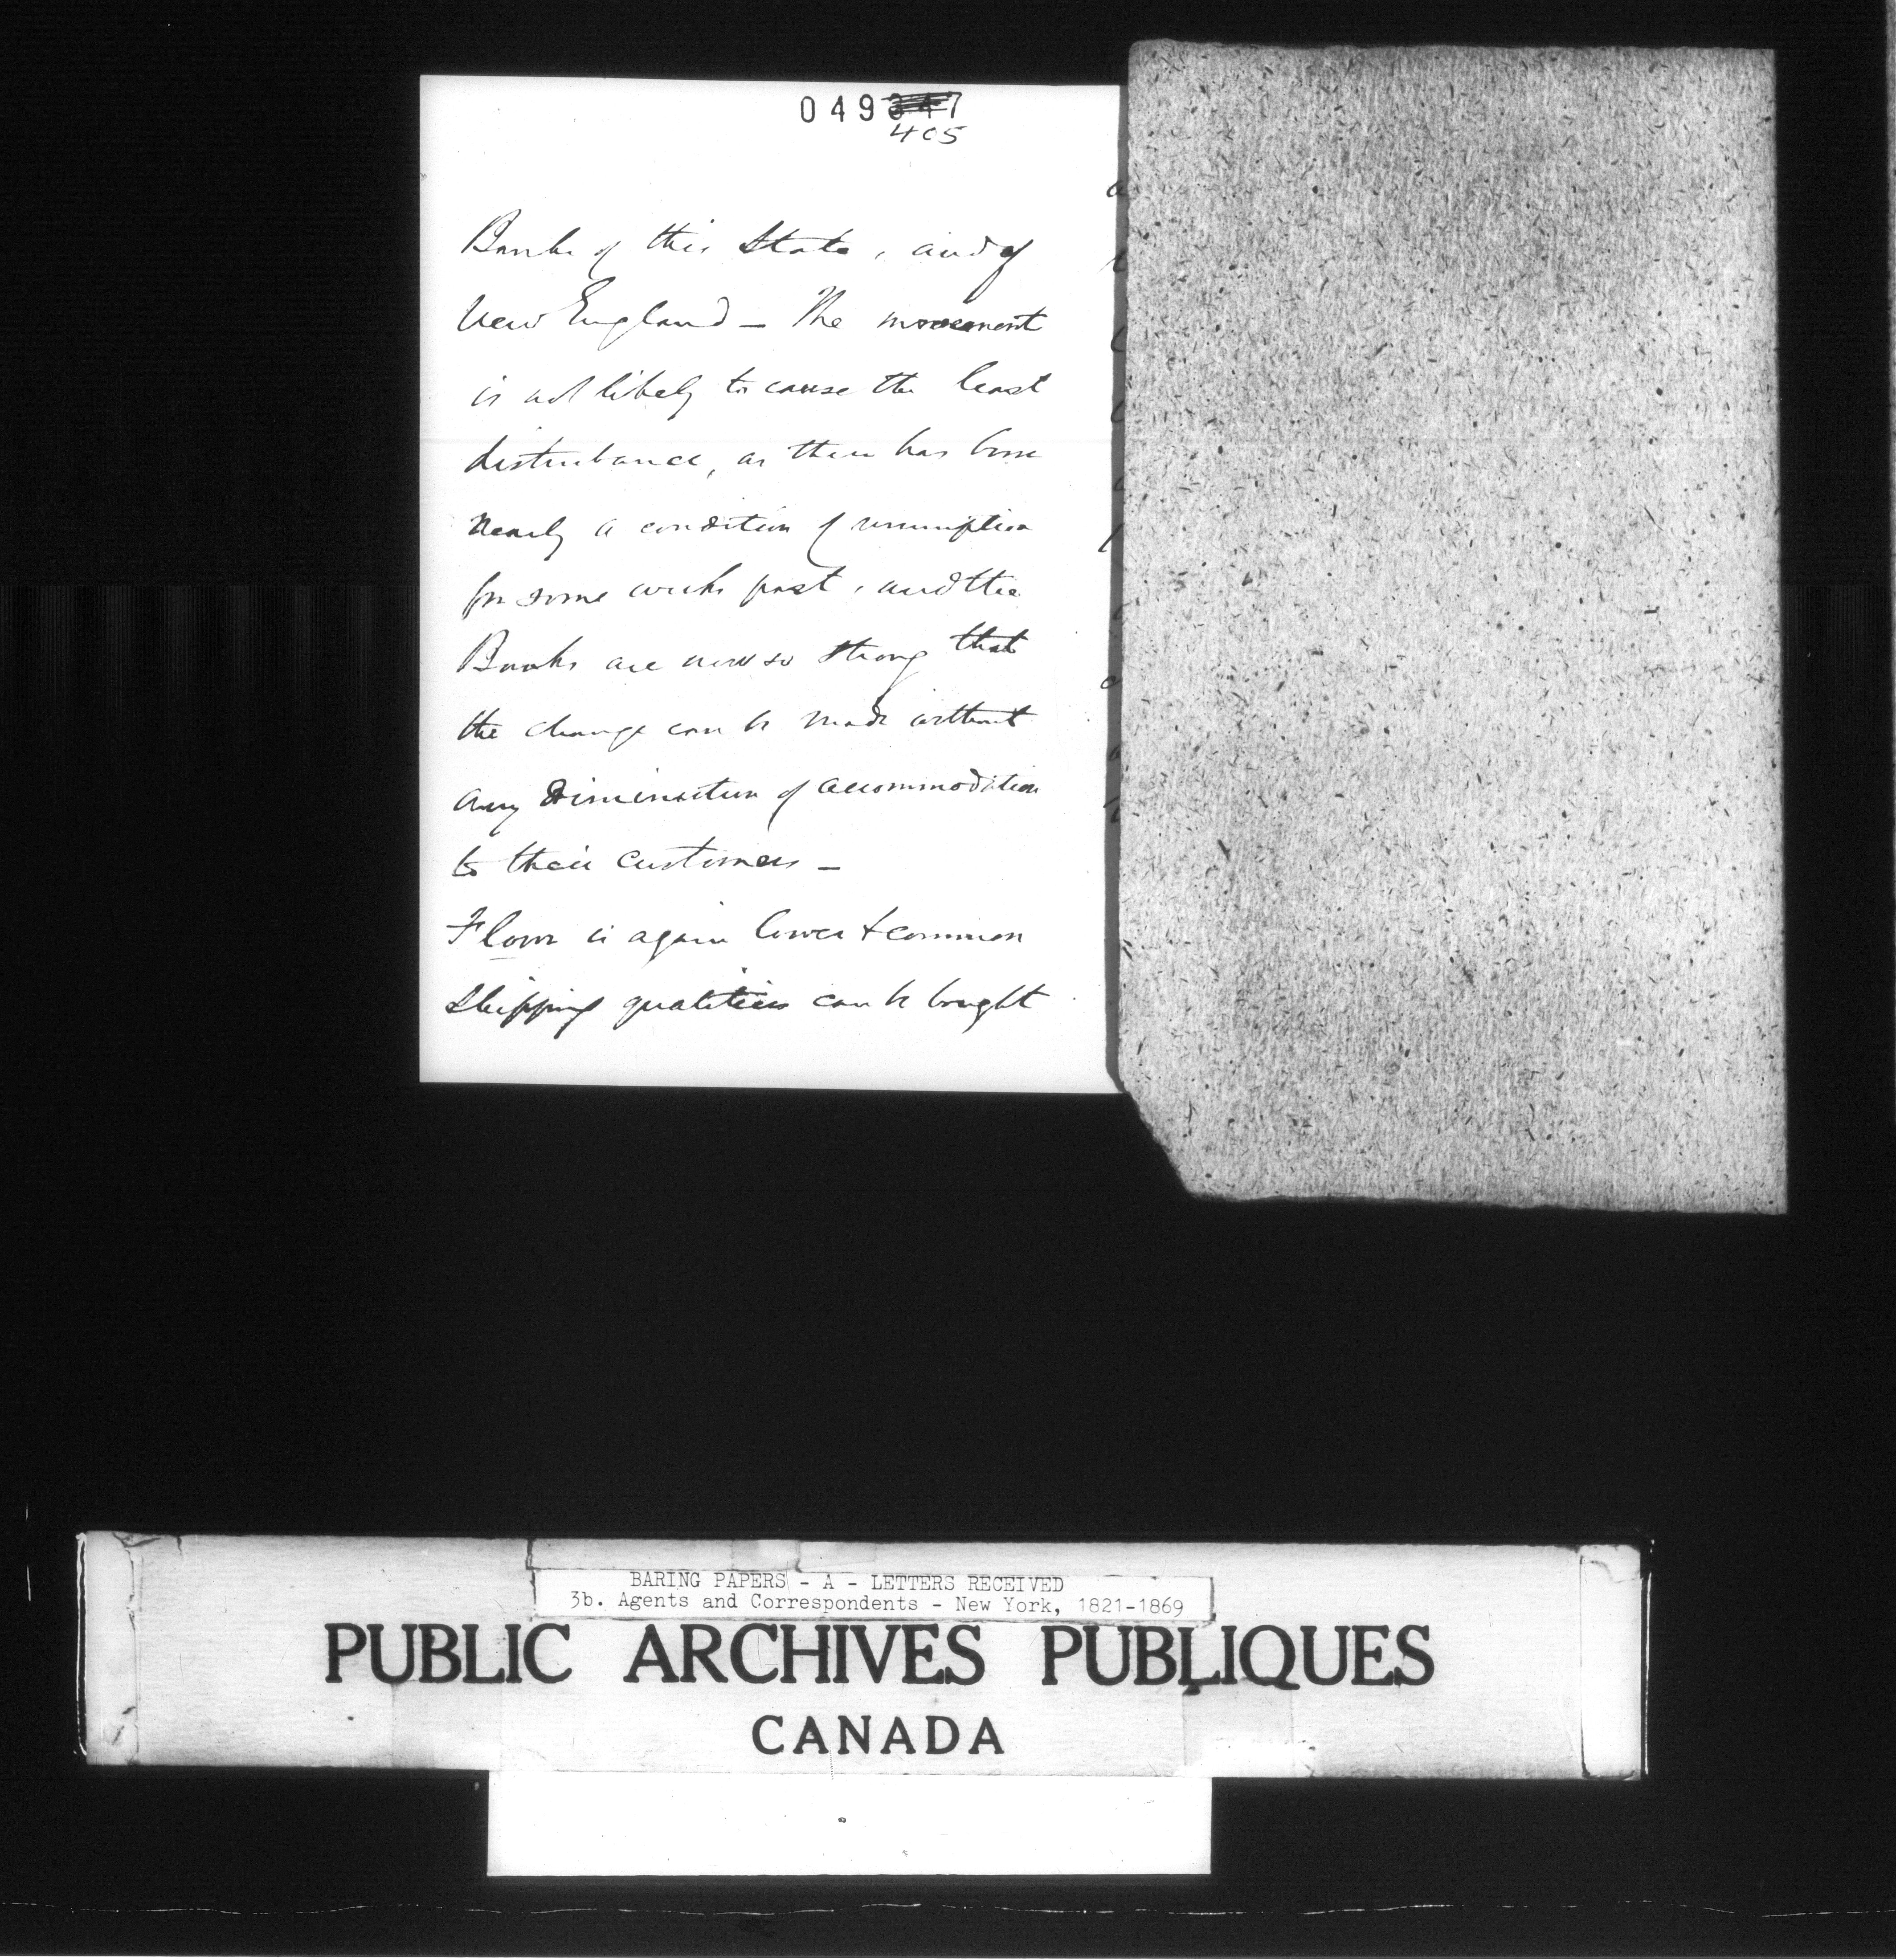 049347
405
Banks of this State, and of
New England - The movement
is not likely to cause the least
disturbance, as there has been
nearly a condition of resumption
for some weeks past, and the
Banks are now so strong that
the change can be made without
any diminution of accommodation
to their customers -
Flour is again lower & common
Shipping qualities can be bought
BARING PAPERS - A - LETTERS RECEIVED
3b. Agents and Correspondents - New York, 1821-1869
PUBLIC ARCHIVES PUBLIQUES
CANADA